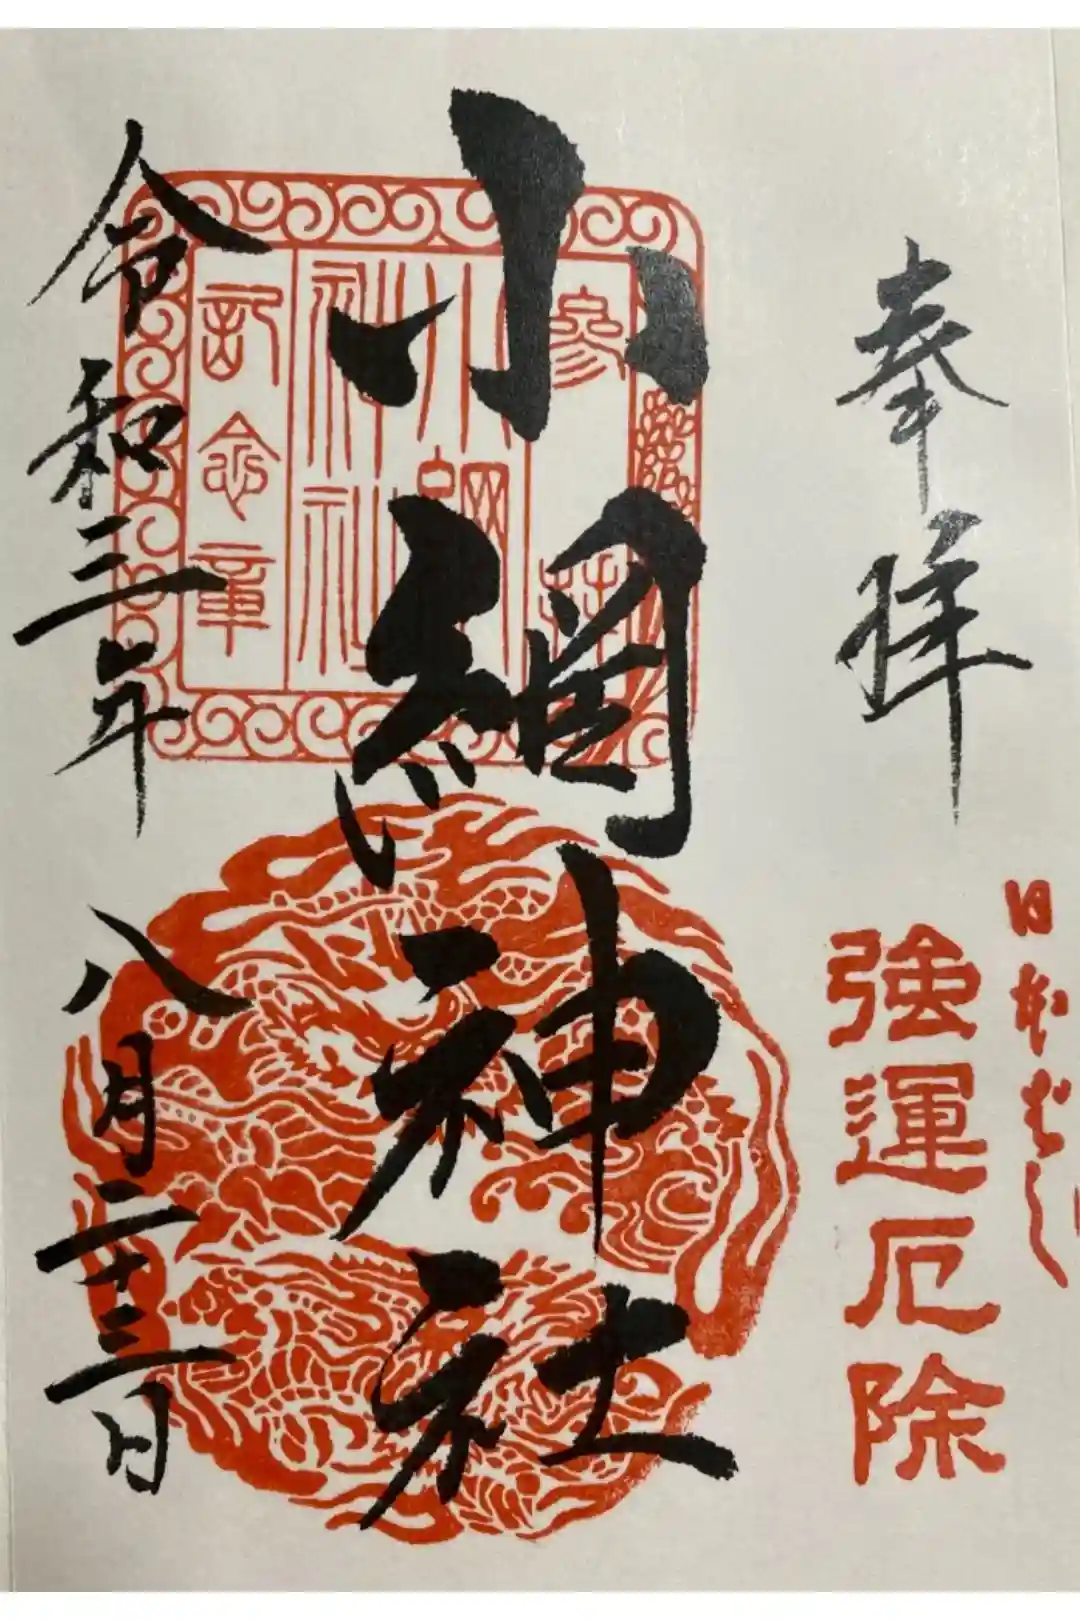 奉拝
日本ばし
強運厄除
小網神社
参拝
小網神社
記念章
令和三年
八月二十三日